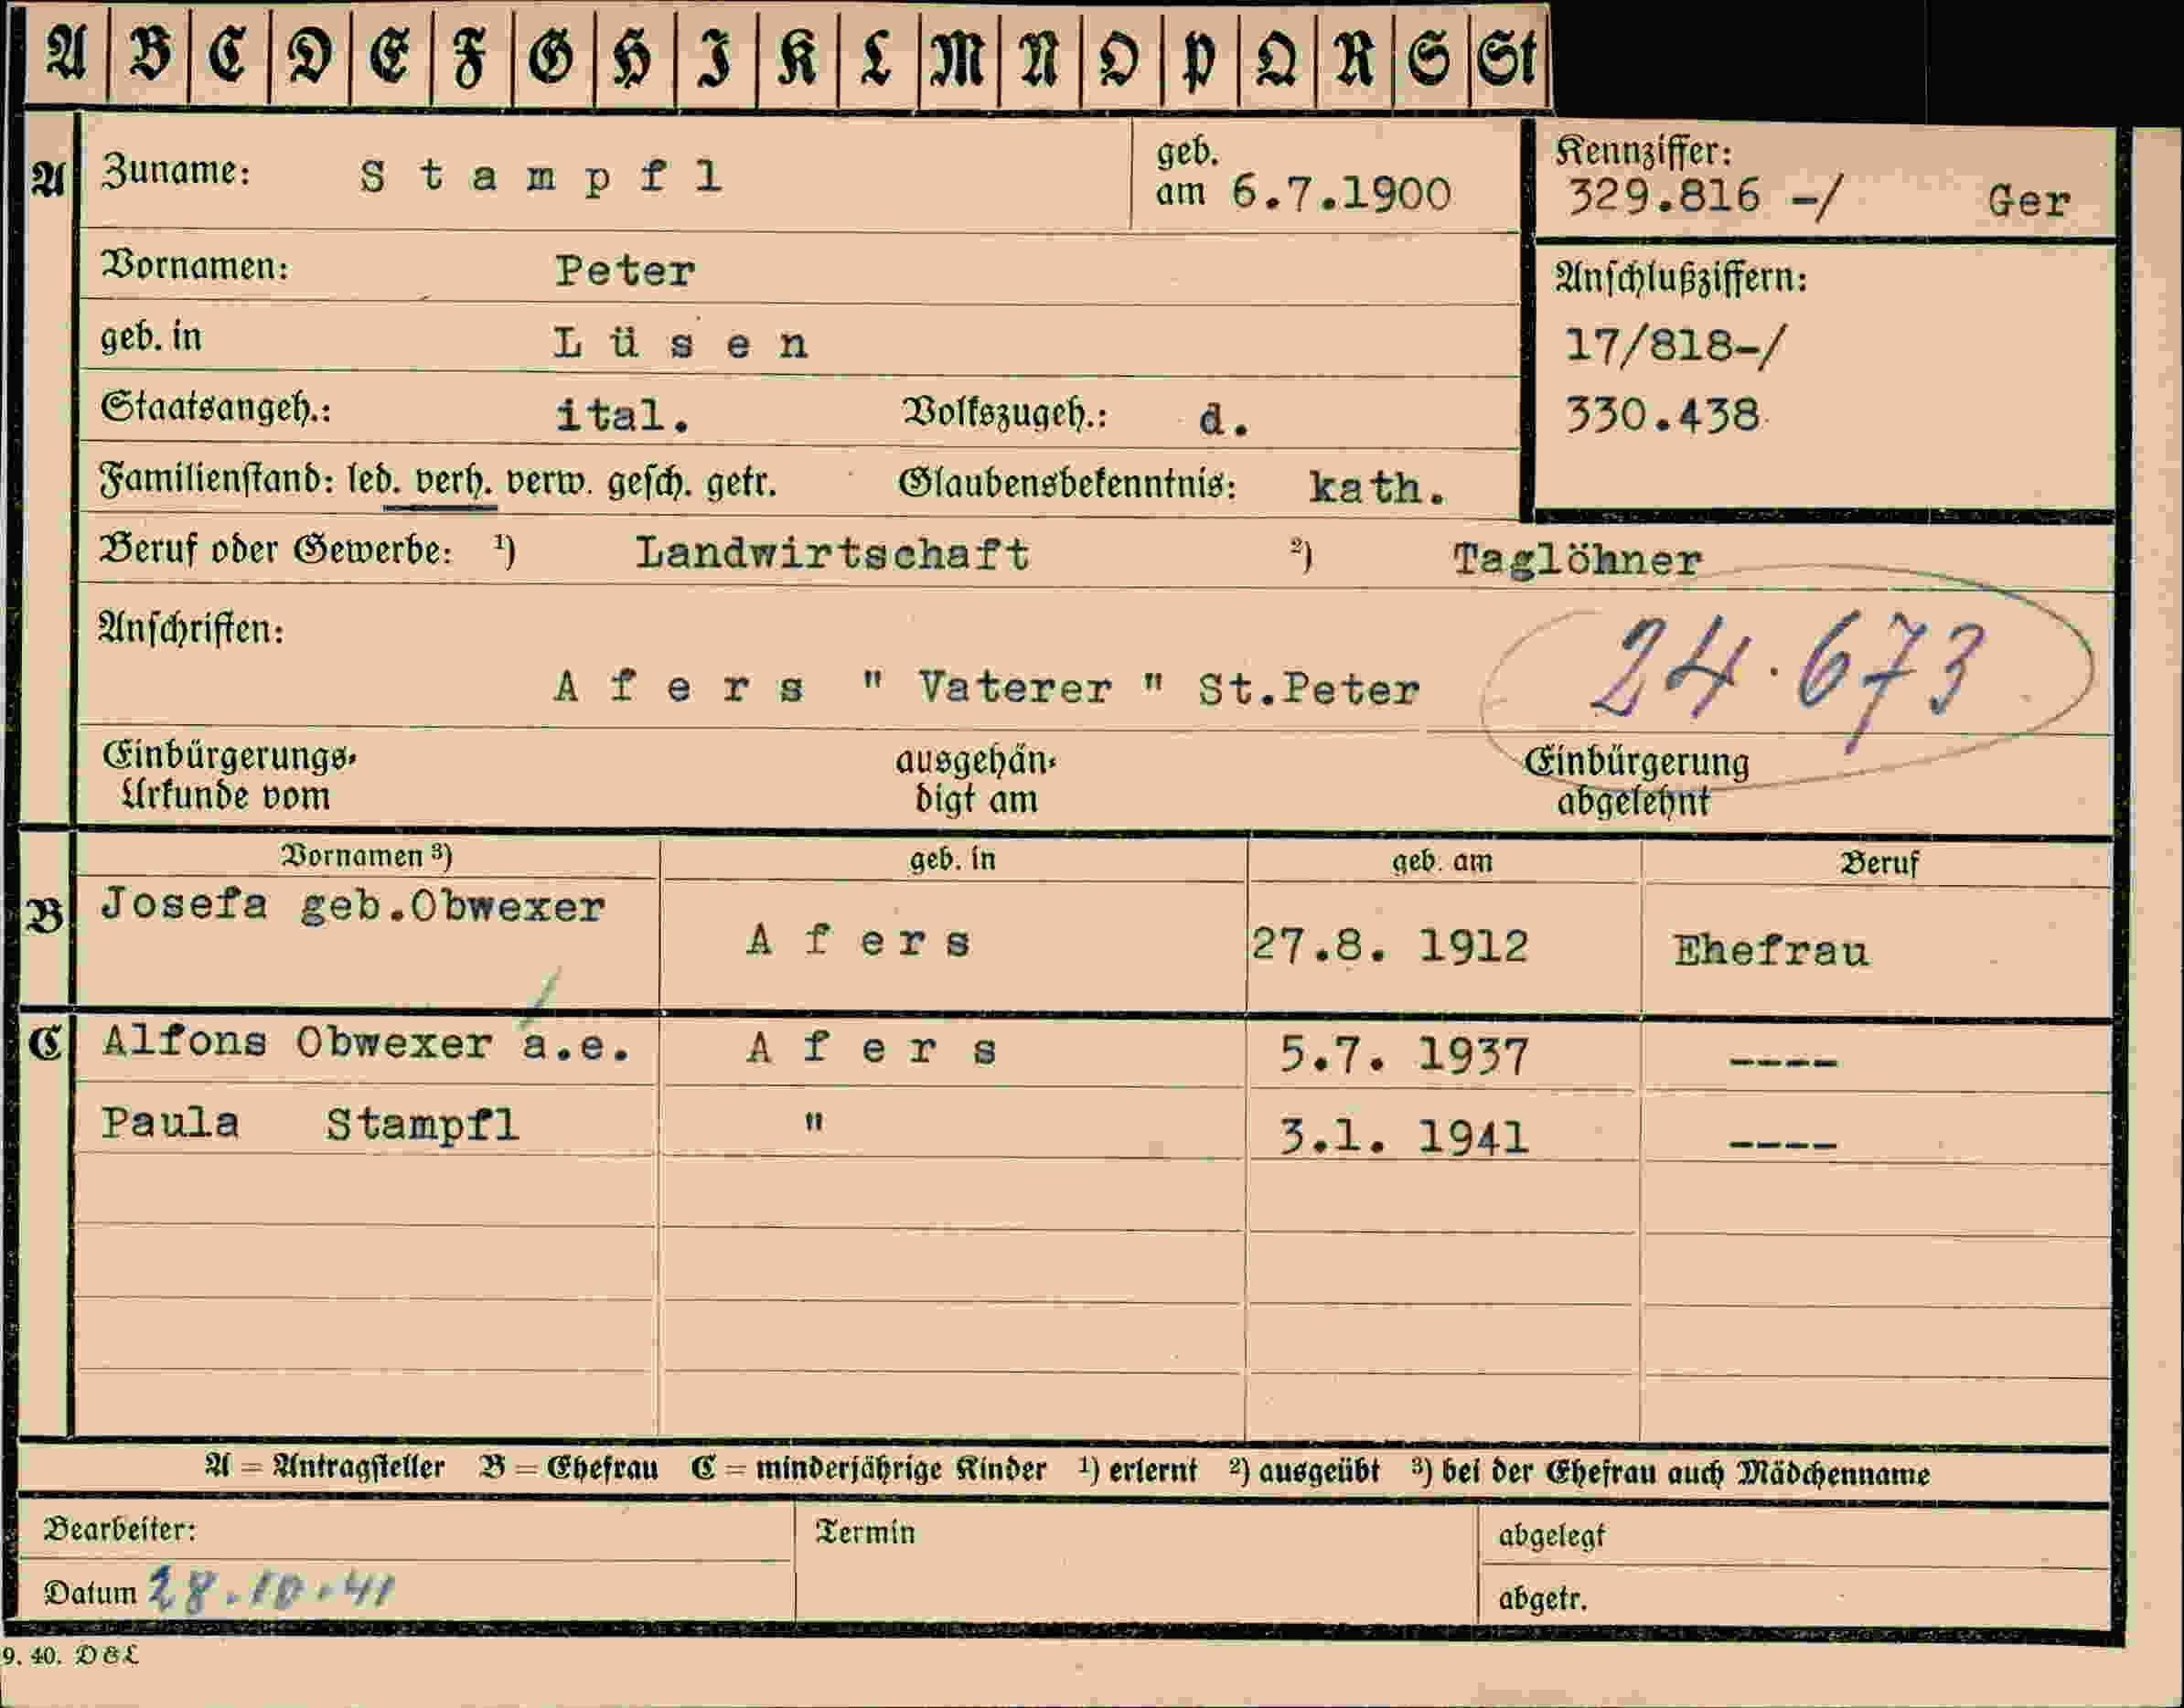 A B C D E F G H I K L M N O P Q R S St
A Zuname: Stampfl geb. am 6.7.1900
Kennziffer: 329.816 -/ Ger
Vornamen: Peter
geb. in Lüsen
Anschlußziffern:
17/818-/
330.438
Staatsangeh.: ital. Volkszugeh.: d.
Familienstand: led. verh. verw. gesch. getr. Glaubensbekenntnis: kath.
Beruf oder Gewerbe: 1) Landwirtschaft 2) Taglöhner
Anschriften:
24.673
Afers "Vaterer" St.Peter
Einbürgerungs-Urkunde vom ausgehän-digt am Einbürgerung abgelehnt
Vornamen 3) geb. in geb. am Beruf
B Josefa geb.Obwexer Afers 27.8. 1912 Ehefrau
C Alfons Obwexer a.e. Afers 5.7. 1937 ----
Paula Stampfl " 3.1. 1941 ----
A = Antragsteller B = Ehefrau C = minderjährige Kinder 1) erlernt 2) ausgeübt 3) bei der Ehefrau auch Mädchenname
Bearbeiter: Termin abgelegt
Datum 28.10.41 abgetr.
9. 40. D&L